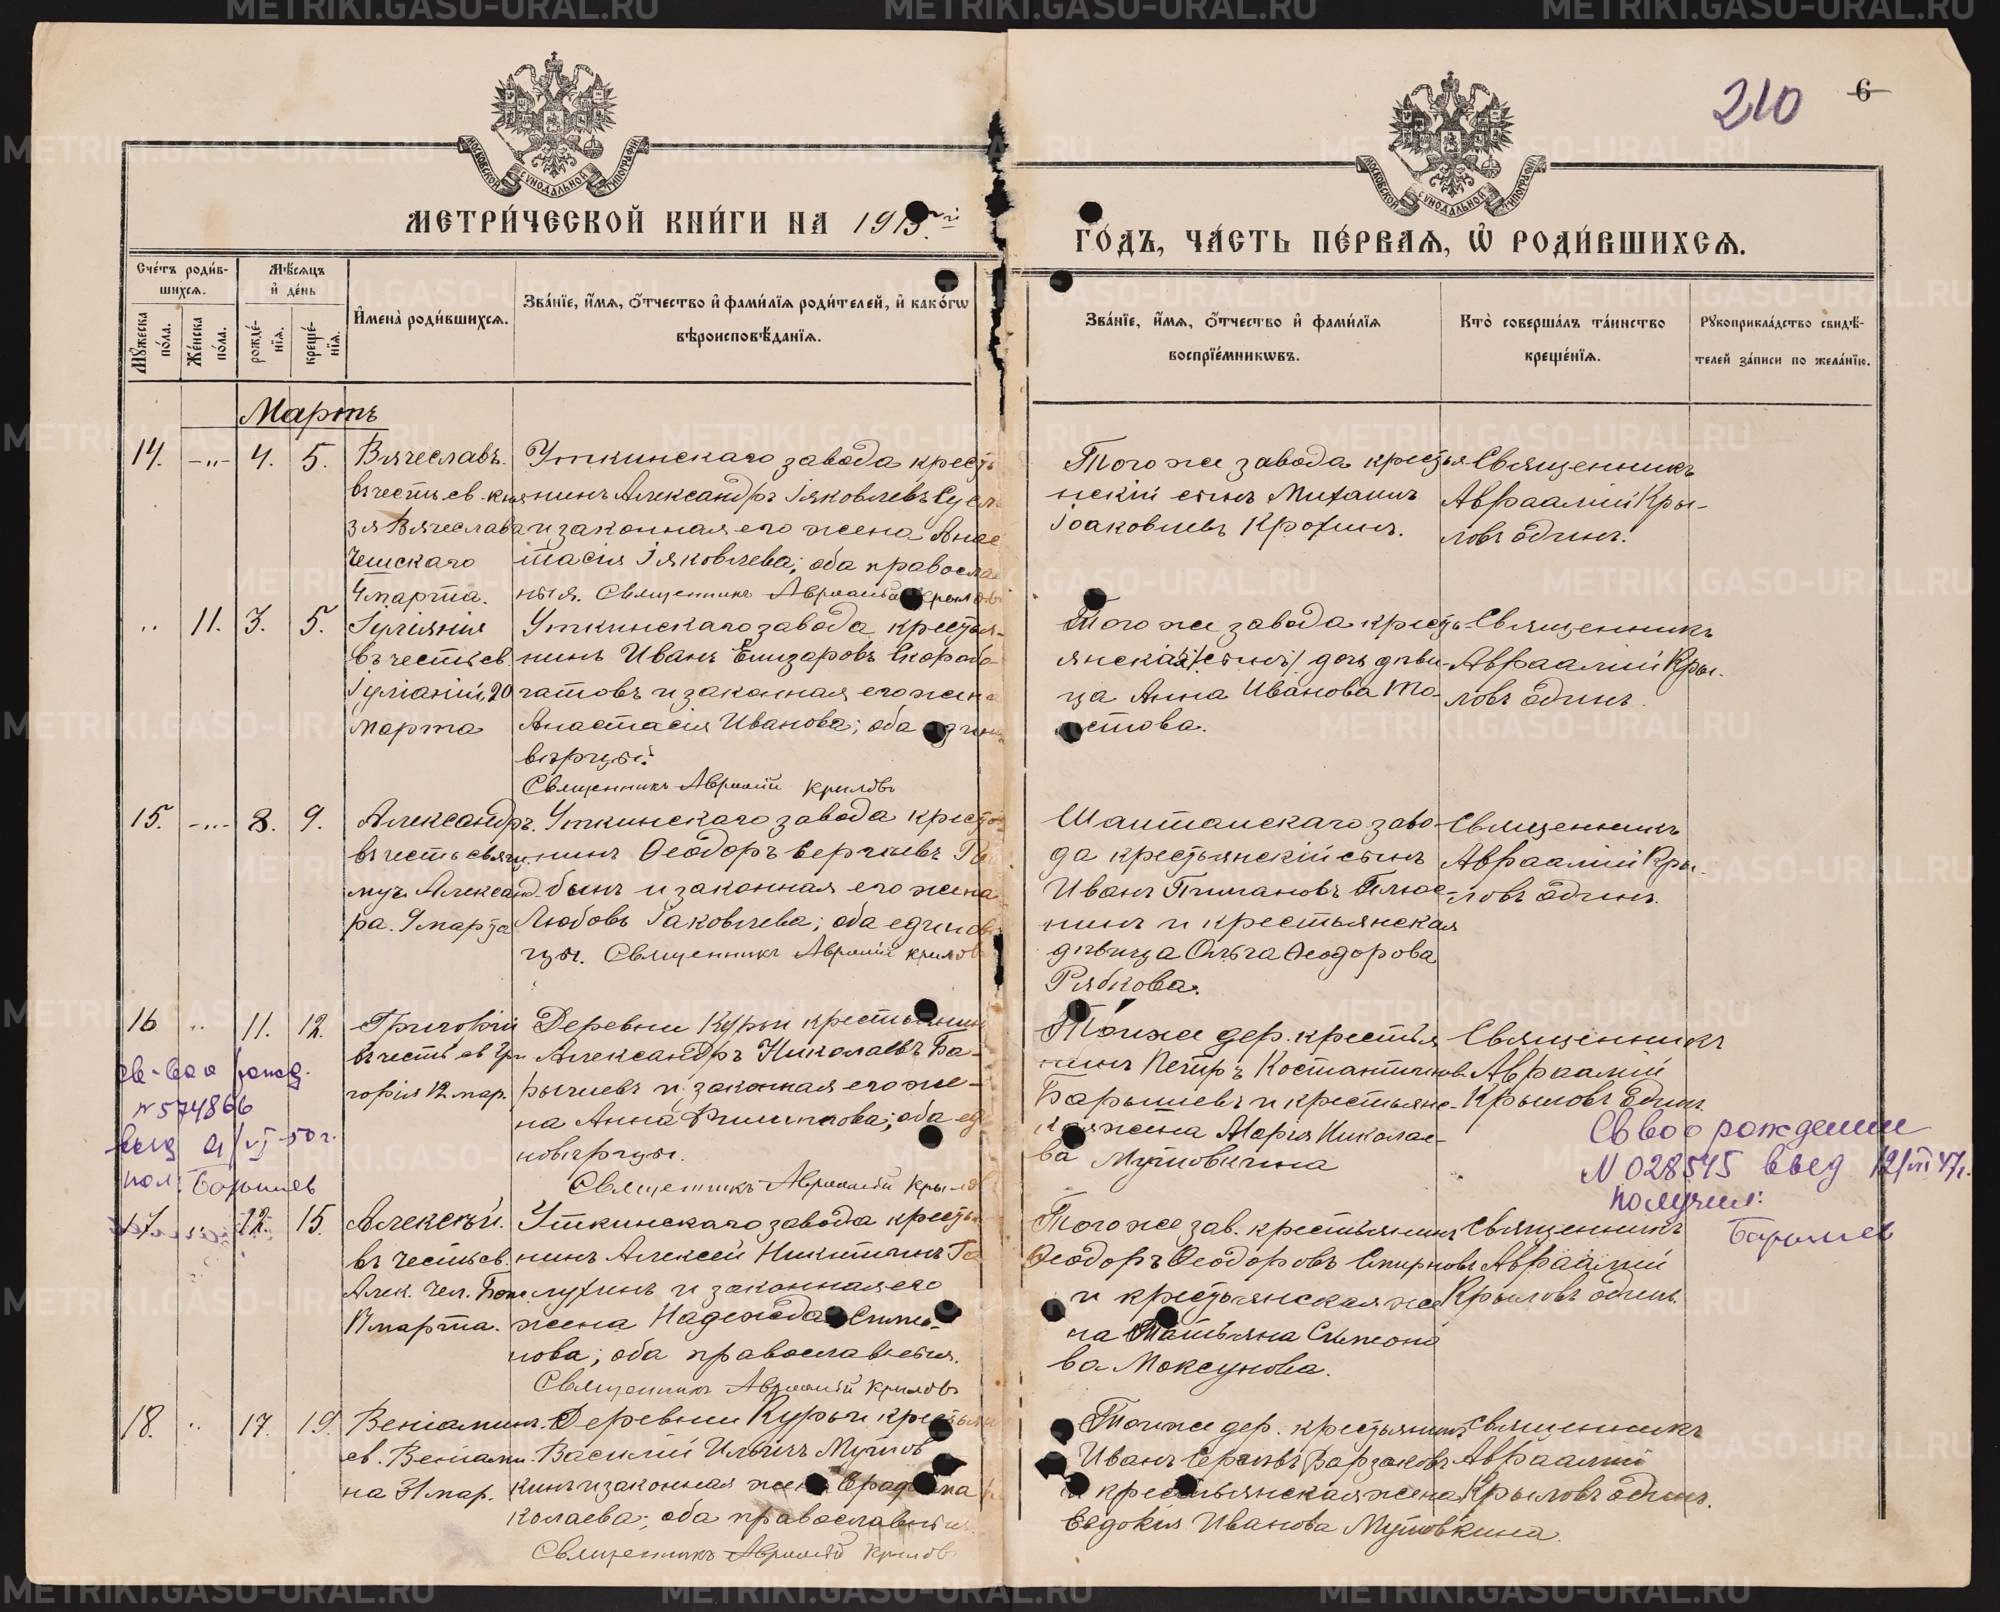 210
6
МОСКОВСКОЙ СѴНОДАЛЬНОЙ ТИПОГРАФІИ
МОСКОВСКОЙ СѴНОДАЛЬНОЙ ТИПОГРАФІИ
МЕТРИ́ЧЕСКОЙ КНИ́ГИ НА 1915.й
ГО́ДЪ, ЧА́СТЬ ПЕ́РВАѦ, Ѽ РОДИ́ВШИХСѦ.
Сче́тъ роди́в-
шихсѧ.
Мꙋ́жеска по́ла.
Же́нска по́ла.
Мѣ́сѧцъ
и҆ де́нь
рожде́-
нїѧ.
креще́-
нїѧ.
И҆мена̀ роди́вшихсѧ.
Зва́нїе, и҆́мѧ, ѻ҆́тчество и҆ фами́лїѧ роди́телей, и҆ како́гѡ
вѣроисповѣ́данїѧ.
Зва́нїе, и҆́мѧ, ѻ҆́тчество и҆ фами́лїѧ
воспрїе́мникѡвъ.
Кто̀ соверша́лъ та́инство
креще́нїѧ.
Рꙋкоприкла́дство свидѣ́-
телей за́писи по жела́нїю.
Мартъ
14. -„- 4. 5.
Вячеславъ.
въ честь св. кня
зя Вячеслава
Чешскаго
4 марта.
Уткинскаго завода кресть
нинъ Александръ Іяковлевъ
и законная его жена Анас
тасія Іяковлева; оба правосла
ныя. Священникъ Авраамій Крылов
Того же завода крестья
нскій сынъ Михаилъ
Іоаковлевъ Крохинъ.
Священникъ
Авраамій Кры-
ловъ один.
„ 11. 3. 5.
Іуліянія
въ честь св
Іуліаніи, 20
марта
Уткинскаго завода крестья-
нинъ Иванъ Елизаровъ Скоробо-
гатовъ и законная его жена
Анастасія Иванова; оба един
вѣрцы.
Священникъ Авраамій Крыловъ
Того же завода кресть
янская /сынъ/ дочь дѣви-
ца Анна Иванова То-
стова.
Священникъ
Авраамій Кры-
ловъ один.
15. -„- 8. 9.
Александръ.
въ честь свящ.
муч. Александ-
ра. 9 марта
Уткинскаго завода кресть
нинъ Ѳеодоръ Сергѣевъ
бинъ и законная его жена
Любовь Іаковлева; оба единов
рцы. Священникъ Авраамій Крылов
Шайтанскаго заво-
да крестьянскій сынъ
Иванъ Пимановъ Плюс-
нинъ и крестьянская
дѣвица Ольга Ѳеодорова
Рябкова.
Священникъ
Авраамій Кры-
ловъ один.
16 „ 11. 12.
Григорій
въ честь св. Гри
горія 12 мар.
Деревни Курьи крестьянин
Александръ Николаевъ Ба-
рышевъ и законная его же-
на Анна Филиппова; оба ед
новѣрцы.
Священникъ Авраамій Крылов
Тойже дер. крестья
нинъ Петръ Костантинов
Барышевъ и крестьянс-
кая жена Марія Николае-
ва Мутовкина
Священникъ
Авраамій
Крыловъ Един.
св-во о рожд.
№ 574866
выд 9/VI-50 г.
пол: Барышев
Св во о рождении
№ 028545 выд 12/VII 47г.
получил:
Барышев
17. „ 12. 15.
Алексѣй.
въ честь св.
Алек. Чел. Бож.
17 марта.
Уткинскаго завода кресть
нинъ Алексей Никитинъ Га
лухинъ и законная его
жена Надежда Симо-
нова; оба православныя.
Священникъ Авраамій Крыловъ
Того же зав. крестьянинъ
Ѳеодоръ Ѳеодоровъ Смирновъ
и крестьянская же
на Татьяна Симоно
ва Моксунова.
Священникъ
Авраамій
Крыловъ один.
18. „ 17. 19.
Веніаминъ.
св. Веніами-
на 31 мар.
Деревни Курьи крестьяни
Василій Ильинъ Мутов
кинъ и законная жена
колаева; оба православныя.
Священникъ Авраамій Крылов
Тойже дер. крестьянинъ
Иванъ Варзаковъ
и крестьянская жена
Евдокія Иванова Мутовкина.
Священникъ
Авраамій
Крыловъ один.
METRIKI.GASO-URAL.RU